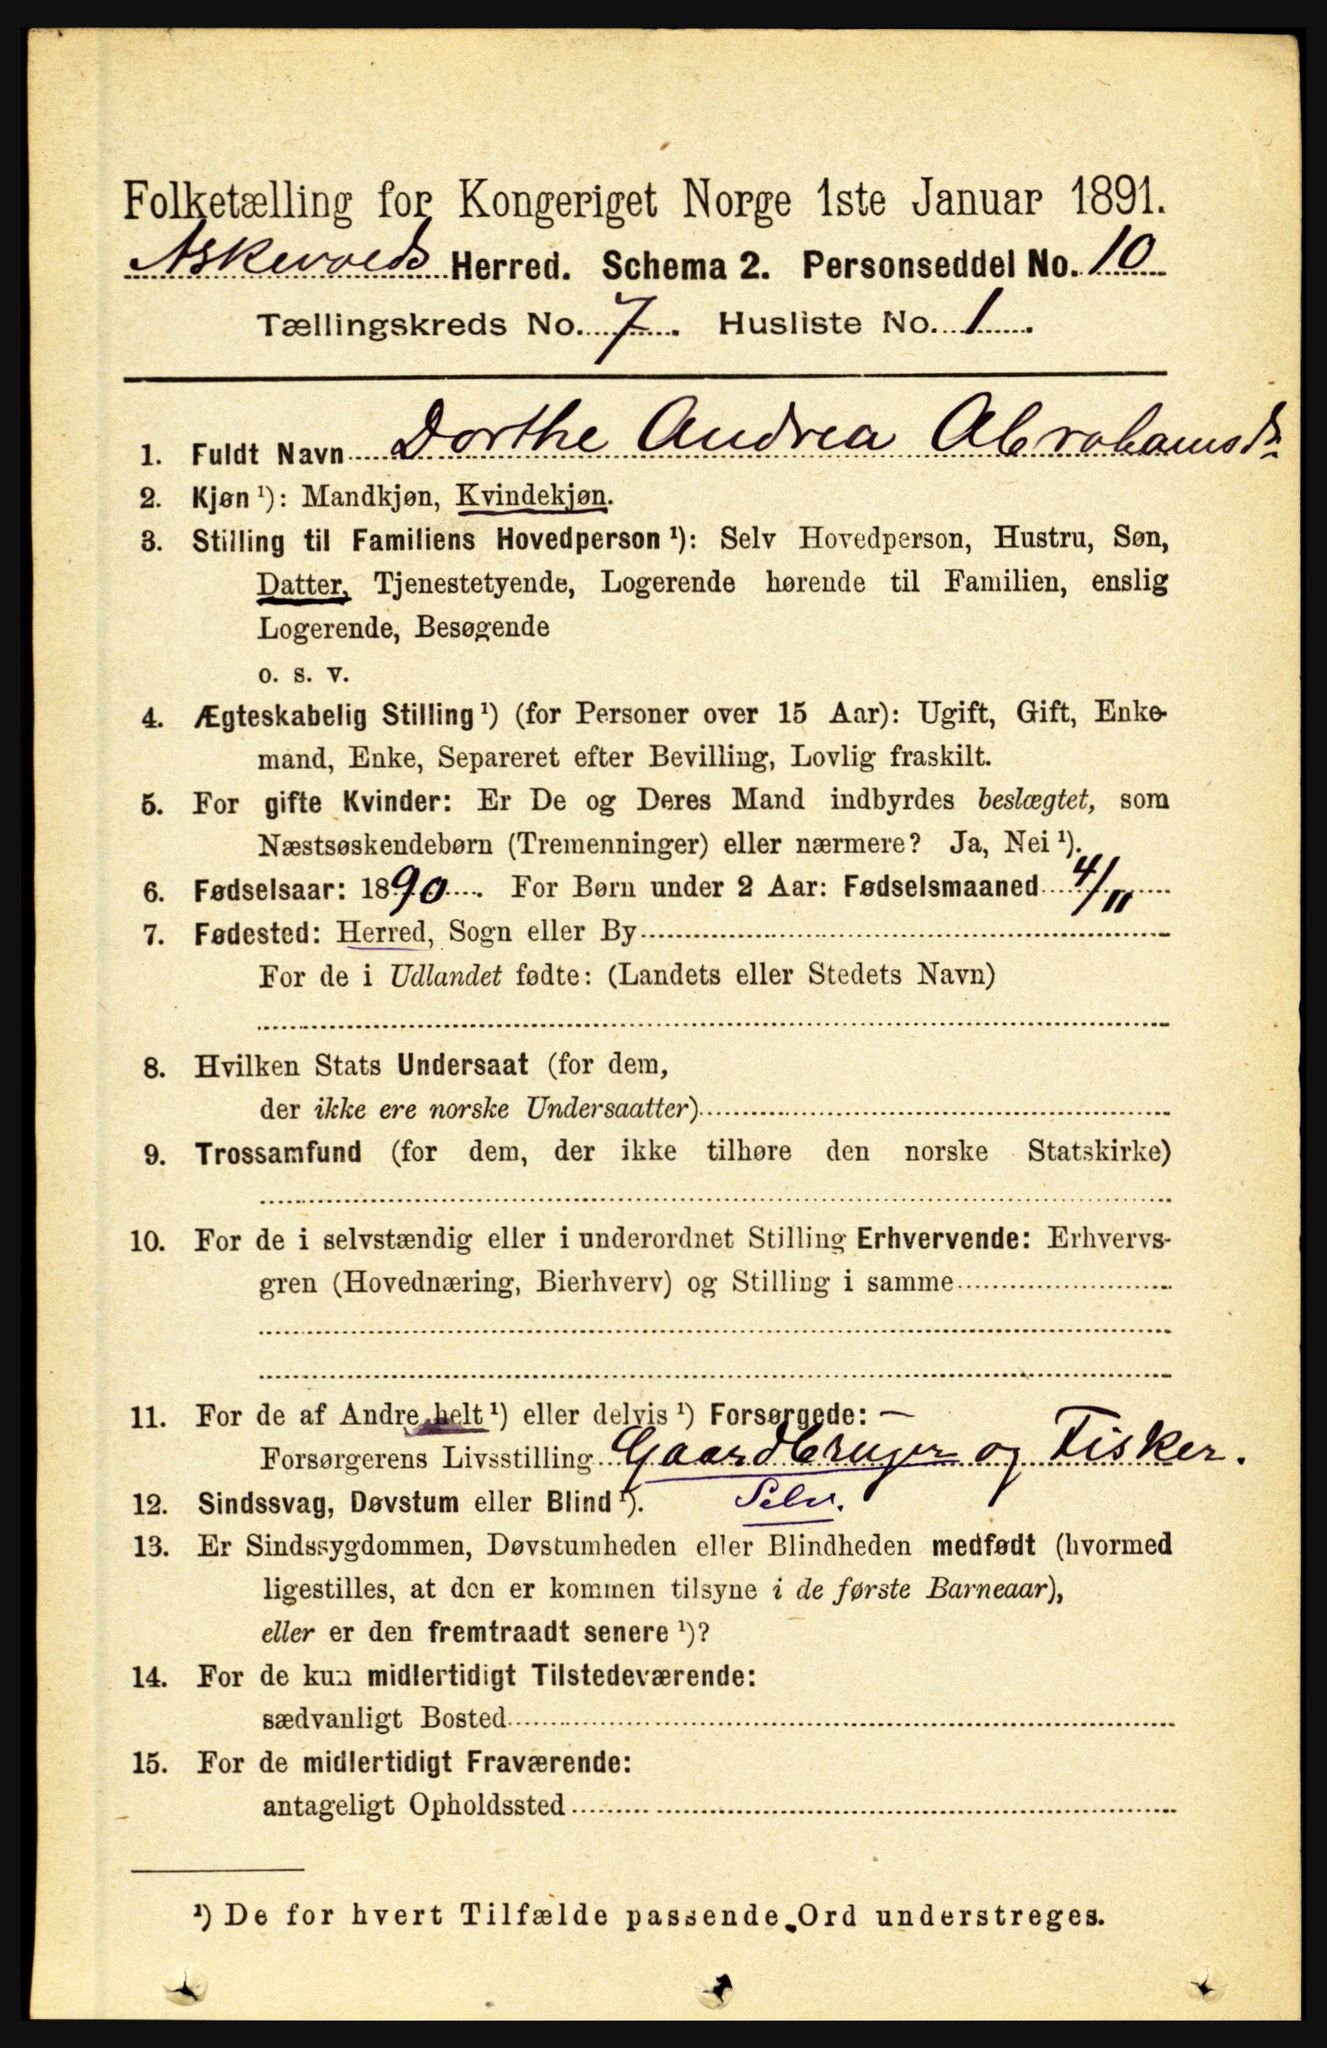 Folketælling for Kongeriget Norge 1ste Januar 1891.
Askevolds Herred. Schema 2. Personseddel No. 10
Tællingskreds No. 7. Husliste No. 1
1. Fuldt Navn Dorthe Andrea Abrahamsd.
2. Kjøn ¹): Mandkjøn, Kvindekjøn.
3. Stilling til Familiens Hovedperson ¹): Selv Hovedperson, Hustru, Søn,
Datter, Tjenestetyende, Logerende hørende til Familien, enslig
Logerende, Besøgende
o. s. v.
4. Ægteskabelig Stilling ¹) (for Personer over 15 Aar): Ugift, Gift, Enke-
mand, Enke, Separeret efter Bevilling, Lovlig fraskilt.
5. For gifte Kvinder: Er De og Deres Mand indbyrdes beslægtet, som
Næstsøskendebørn (Tremenninger) eller nærmere? Ja, Nei ¹).
6. Fødselsaar: 1890. For Børn under 2 Aar: Fødselsmaaned 4/11
7. Fødested: Herred, Sogn eller By
For de i Udlandet fødte: (Landets eller Stedets Navn)
8. Hvilken Stats Undersaat (for dem,
der ikke ere norske Undersaatter)
9. Trossamfund (for dem, der ikke tilhøre den norske Statskirke)
10. For de i selvstændig eller i underordnet Stilling Erhvervende: Erhvervs-
gren (Hovednæring, Bierhverv) og Stilling i samme
11. For de af Andre helt ¹) eller delvis ¹) Forsørgede: —
Forsørgerens Livsstilling Gaardbruger og Fisker.
12. Sindssvag, Døvstum eller Blind ¹). Selv.
13. Er Sindssygdommen, Døvstumheden eller Blindheden medfødt (hvormed
ligestilles, at den er kommen tilsyne i de første Barneaar),
eller er den fremtraadt senere ¹)?
14. For de kun midlertidigt Tilstedeværende:
sædvanligt Bosted
15. For de midlertidigt Fraværende:
antageligt Opholdssted
¹) De for hvert Tilfælde passende Ord understreges.